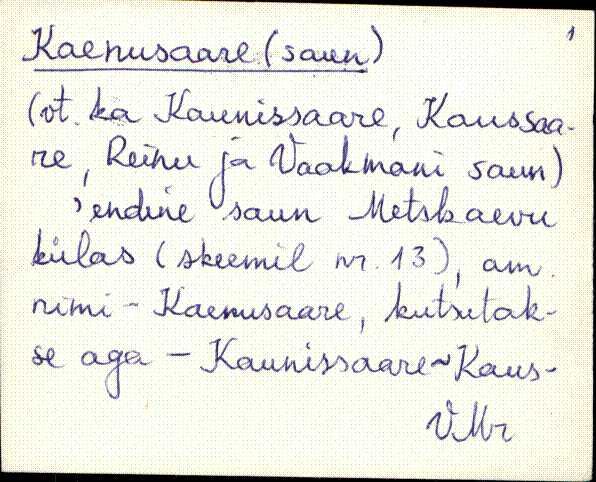 1
Kaenusaare (saun)
(vt. ka Kaunissaare, Kaussaa-
re, Reinu ja Vaakmani saun)
'endine saun Metskaevu
külas (skeemil nr. 13), am.
nimi - Kaenusaare, kutsutak-
se aga - Kaunissaare ~ Kaus-
VMr